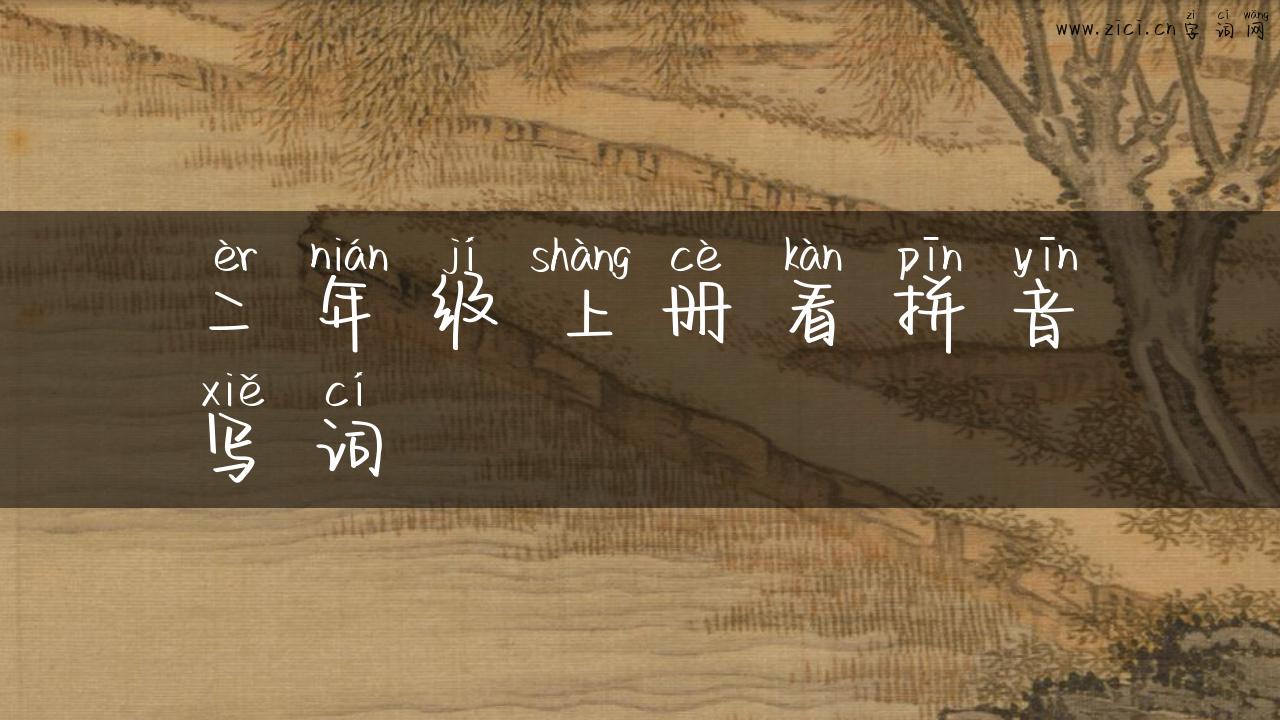 zì cí wǎng
www.zici.cn字词网
èr nián jí shàng cè kàn pīn yīn
二年级上册看拼音
xiě cí
写词